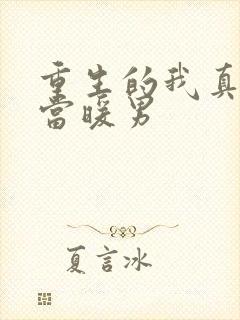 重生的我真
當暖男
夏言冰